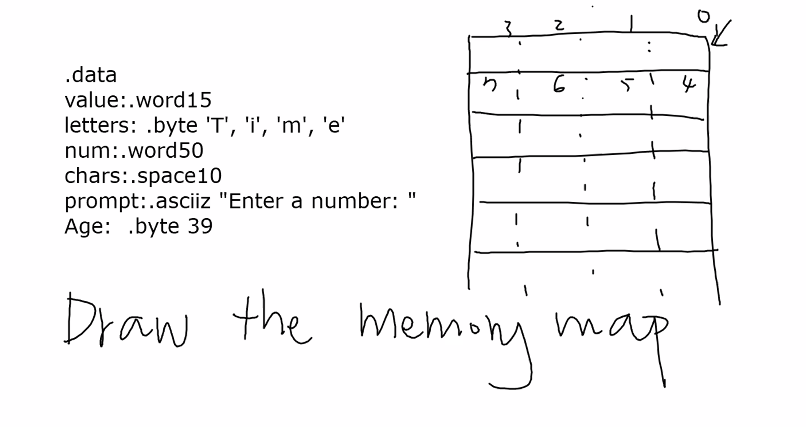 3 2 1 0
.data
7 6 5 4
value:.word15
letters: .byte 'T', 'i', 'm', 'e'
num:.word50
chars:.space10
prompt:.asciiz "Enter a number: "
Age:  .byte 39
Draw the memory map